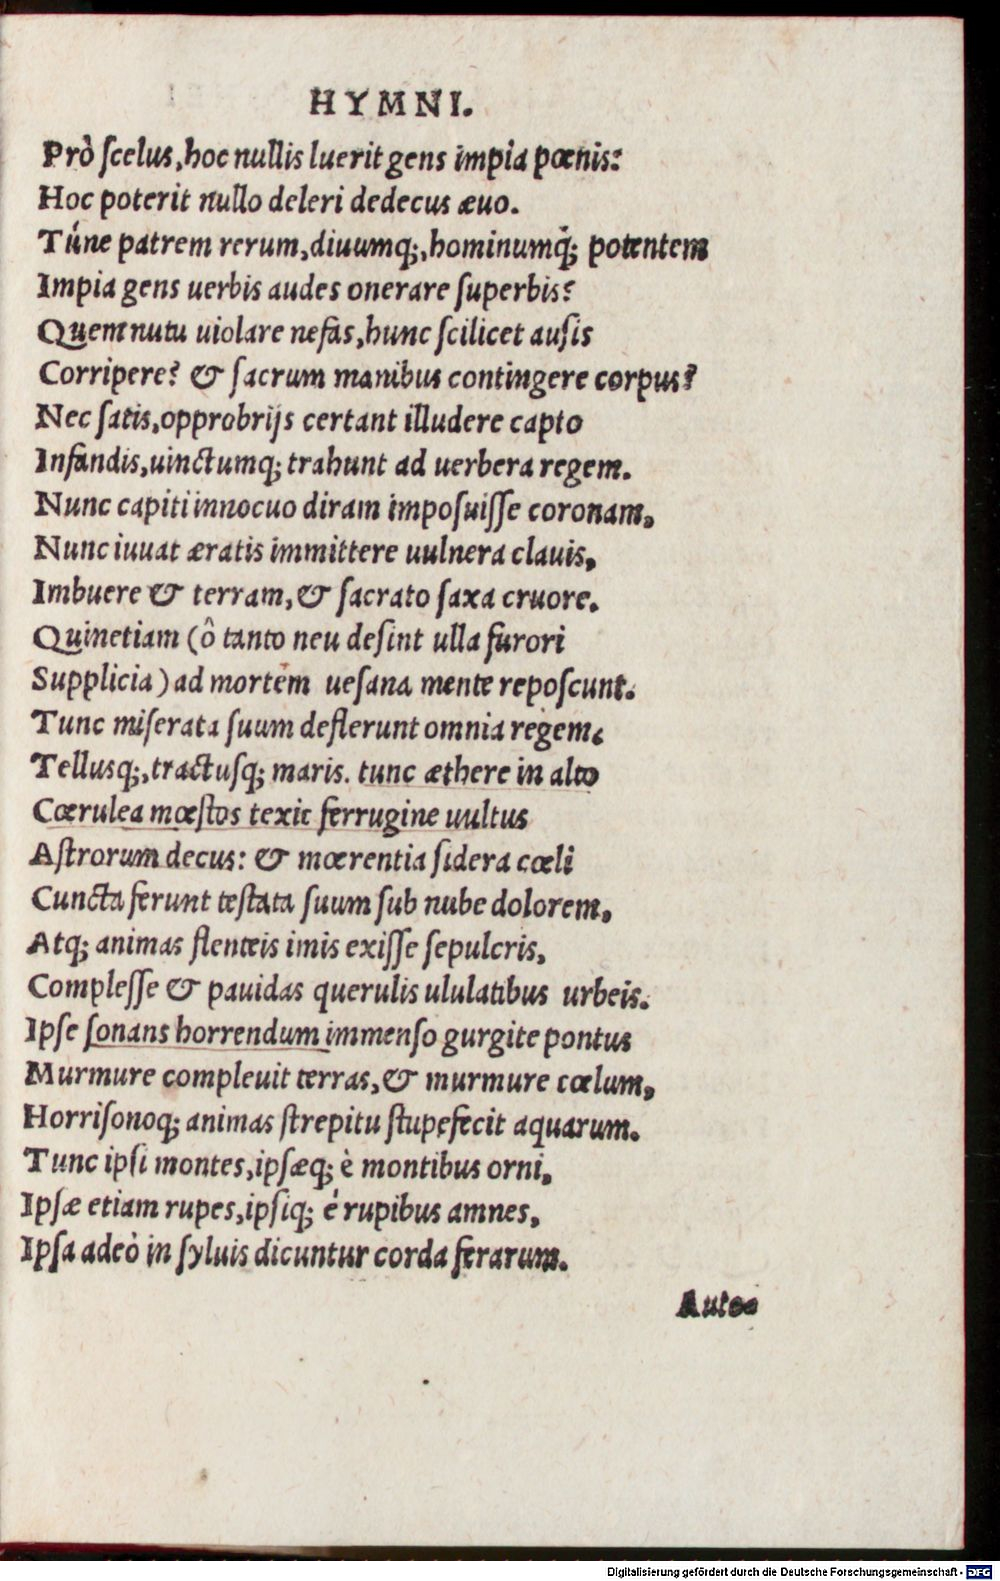 HYMNI.
Prò ſcelus, hoc nullis luerit gens impia pœnis?
Hoc poterit nullo deleri dedecus æuo.
Túne patrem rerum, diuumq;, hominumq́; potentem
Impia gens uerbis audes onerare ſuperbis?
Quem nutu uiolare nefas, hunc ſcilicet auſis
Corripere? & ſacrum manibus contingere corpus?
Nec ſatis, opprobrijs certant illudere capto
Infandis, uinctumq; trahunt ad uerbera regem.
Nunc capiti innocuo diram impoſuiſſe coronam,
Nunc iuuat æratis immittere uulnera clauis,
Imbuere & terram, & ſacrato ſaxa cruore.
Quinetiam (ô tanto neu deſint ulla furori
Supplicia) ad mortem ueſana mente repoſcunt.
Tunc miſerata ſuum deflerunt omnia regem,
Tellusq;, tractuſq; maris. tunc æthere in alto
Cœrulea mœſtos texit ferrugine uultus
Aſtrorum decus: & mœrentia ſidera cœli
Cuncta ferunt teſtata ſuum ſub nube dolorem,
Atq; animas flenteis imis exiſſe ſepulcris,
Compleſſe & pauidas querulis ululatibus urbeis.
Ipſe ſonans horrendum immenſo gurgite pontus
Murmure compleuit terras, & murmure cœlum,
Horriſonoq; animas ſtrepitu ſtupefecit aquarum.
Tunc ipſi montes, ipſæq; è montibus orni,
Ipſæ etiam rupes, ipſiq; é rupibus amnes,
Ipſa adeò in ſyluis dicuntur corda ferarum.
Digitalisierung gefördert durch die Deutsche Forschungsgemeinschaft - DFG